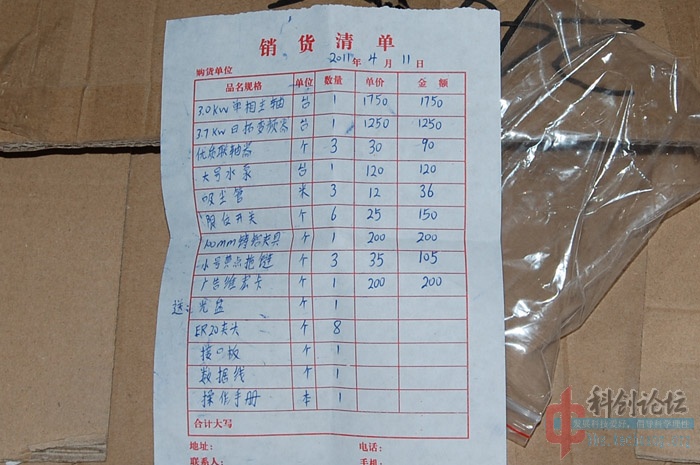 销货清单
2011年4月11日
购货单位
品名规格 单位 数量 单价 金额
3.0KW 单相主轴 台 1 1750 1750
3.7KW 日拓变频器 台 1 1250 1250
优质联轴器 个 3 30 90
大号水泵 台 1 120 120
吸尘管 米 3 12 36
限位开关 个 6 25 150
100mm铸铝夹具 个 1 200 200
小号 拖链 个 3 35 105
广告维宏卡 个 1 200 200
送: 光盘 个 1
ER20夹头 个 8
接口板 个 1
数据线 个 1
操作手册 本 1
合计大写
地址: 电话:
联系人: 手机:
科创论坛